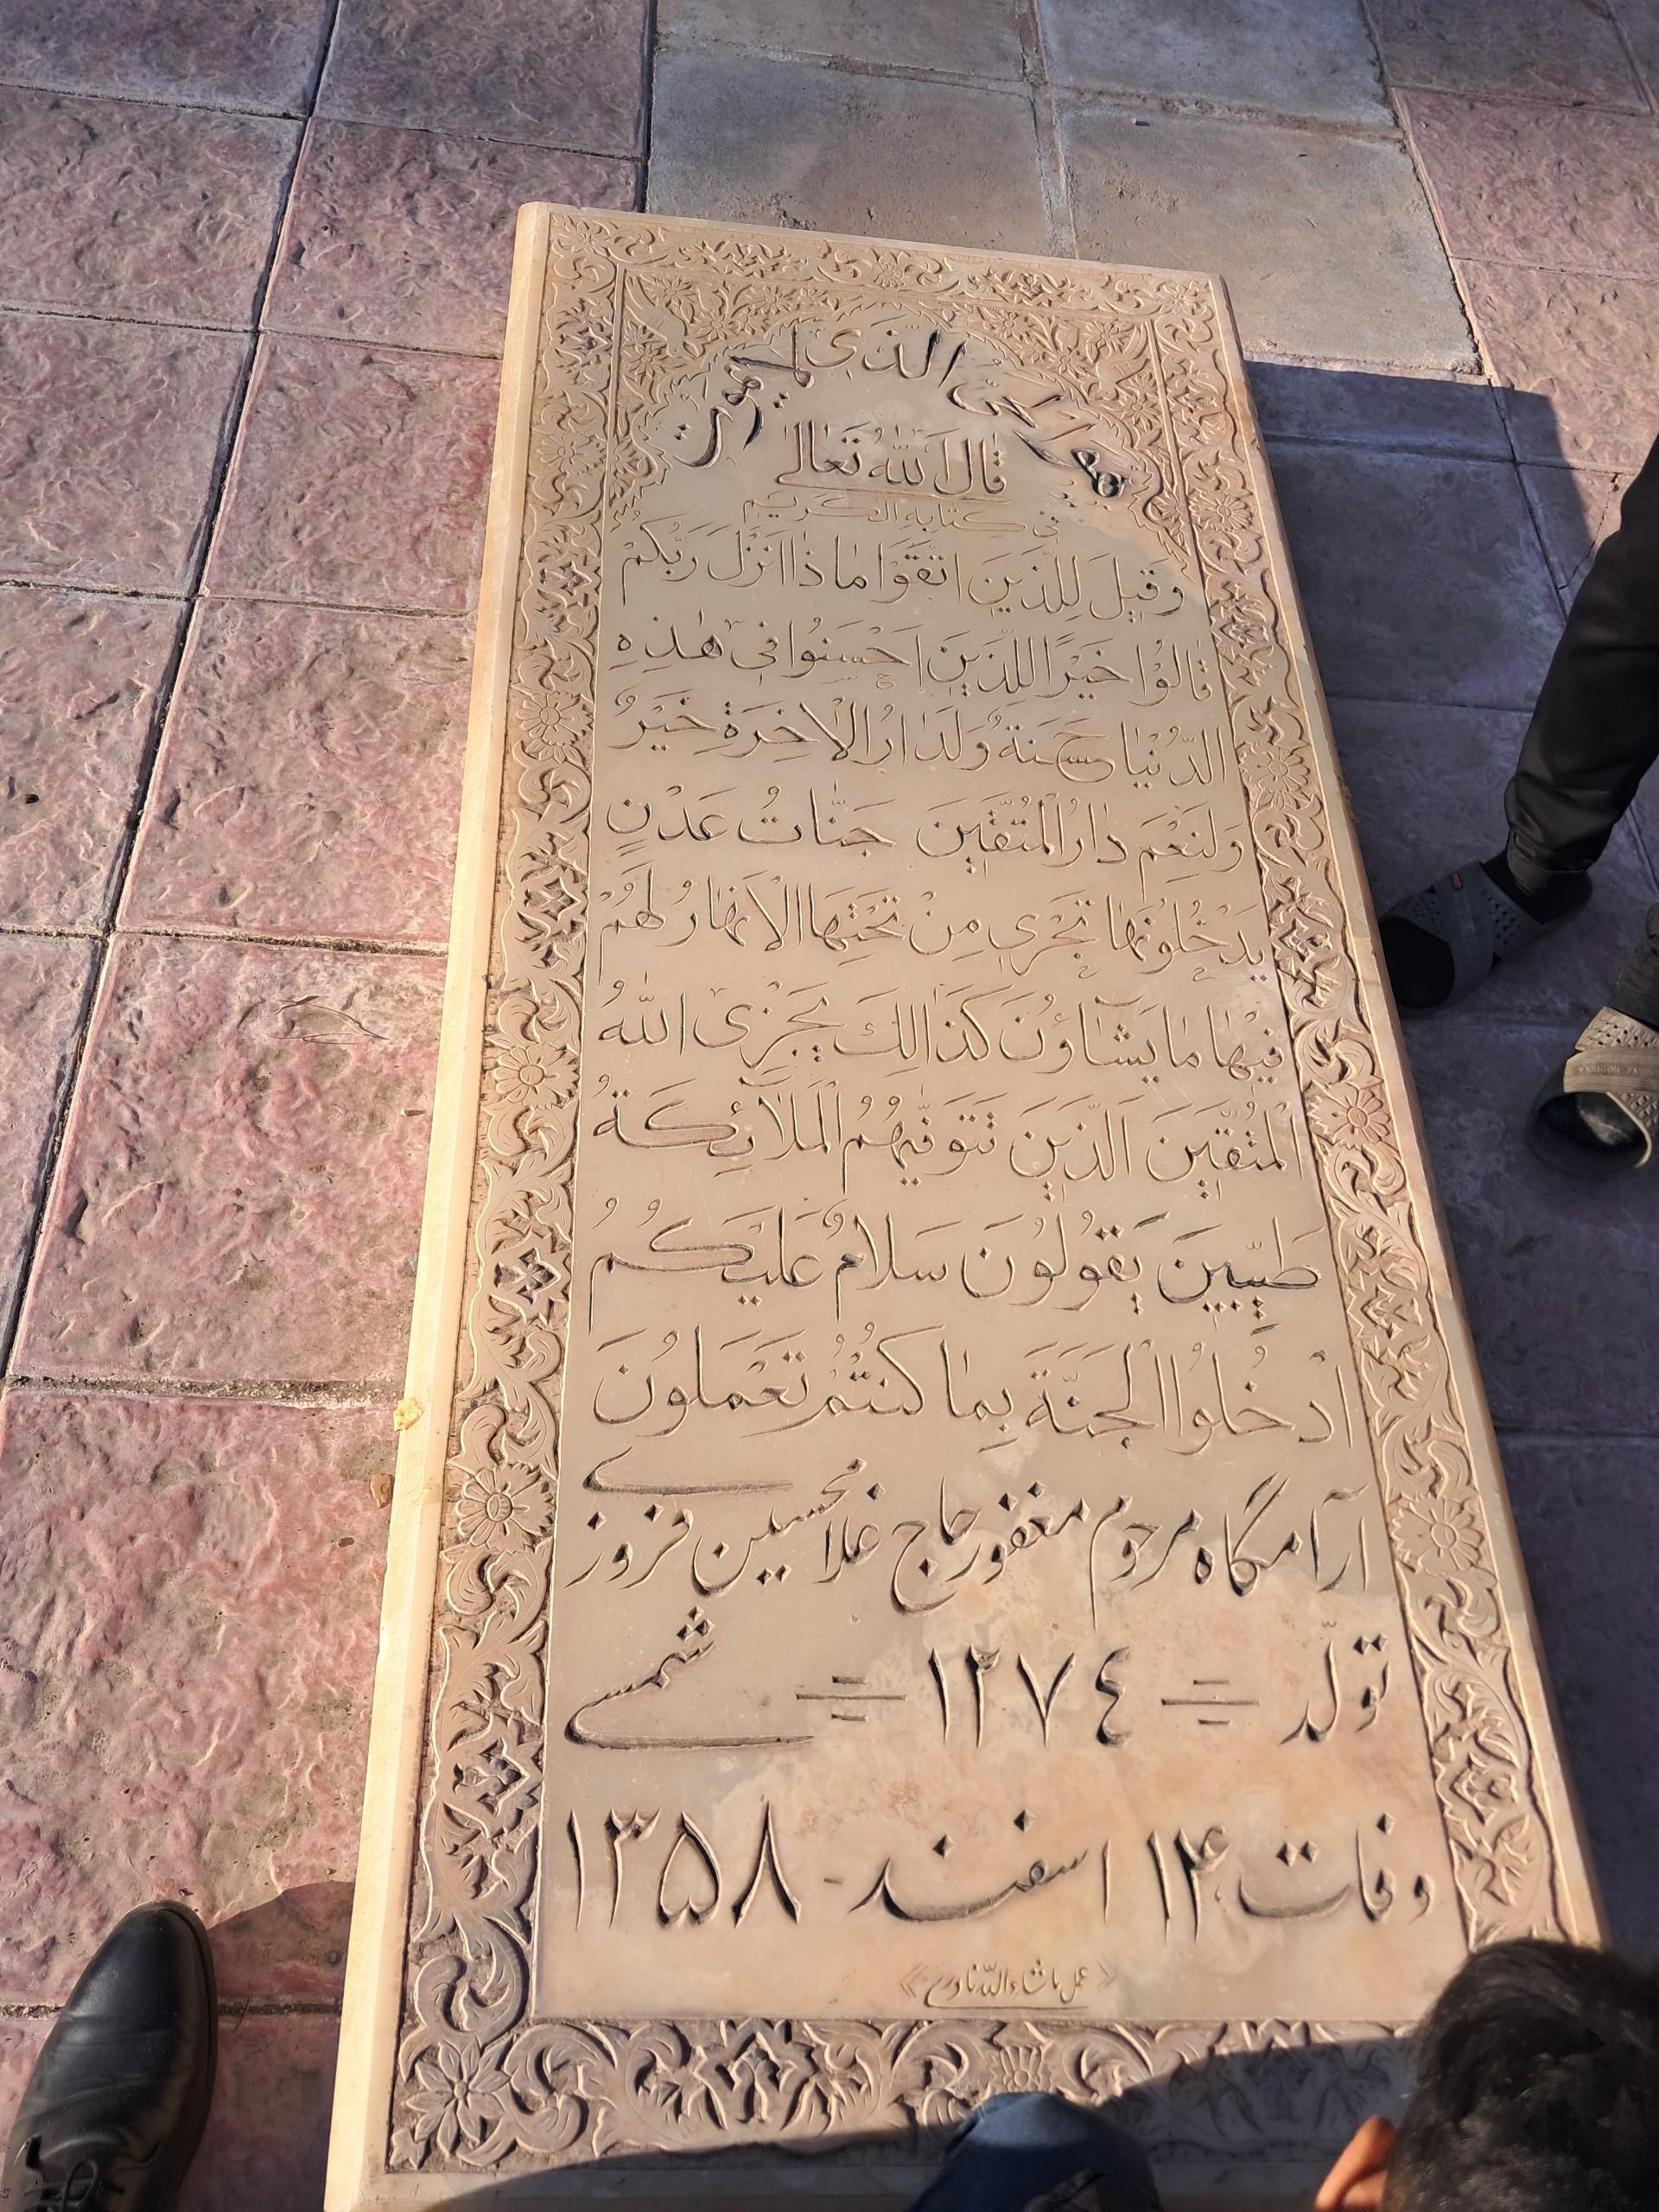 هو الحی الذی لا یموت
قَالَ اللهُ تَعَالىٰ
فی کِتٰابِهِ الکَریم
وَ قیٖلَ لِلَّذیٖنَ اتَّقَوْا مٰا ذٰا اَنْزَلَ رَبُّکُمْ
قٰالُوْا خَیْرًا لِلَّذیٖنَ اَحْسَنُوا فیٖ هٰذِهِ
الدُّنْیٰا حَسَنَةٌ وَلَدٰارُ الْاٰخِرَةِ خَیْرٌ
وَلَنِعْمَ دٰارُ الْمُتَّقیٖنَ جَنّٰاتُ عَدْنٍ
یَدْخُلُونَهٰا تَجْرٖی مِنْ تَحْتِهَا الْاَنْهٰارُ لَهُمْ
فیٖهٰا مٰا یَشٰآؤُنَ کَذٰالِكَ یَجْزِی اللّٰهُ
الْمُتَّقیٖنَ اَلَّذیٖنَ تَتَوَفّٰیهُمُ الْمَلآئِکَةُ
طَیِّبیٖنَ یَقُولُونَ سَلامٌ عَلَیْکُمُ
ادْخُلُوا الْجَنَّةَ بِمٰا کُنْتُمْ تَعْمَلُونَ
آرامگاه مرحوم مغفور حاج غلامحسین فروزے
تولّد = ١٢٧٤ = شمسے
وفات ۱۴ اسفند - ۱۳۵۸
«عمل ماشاءاللّه نادم»